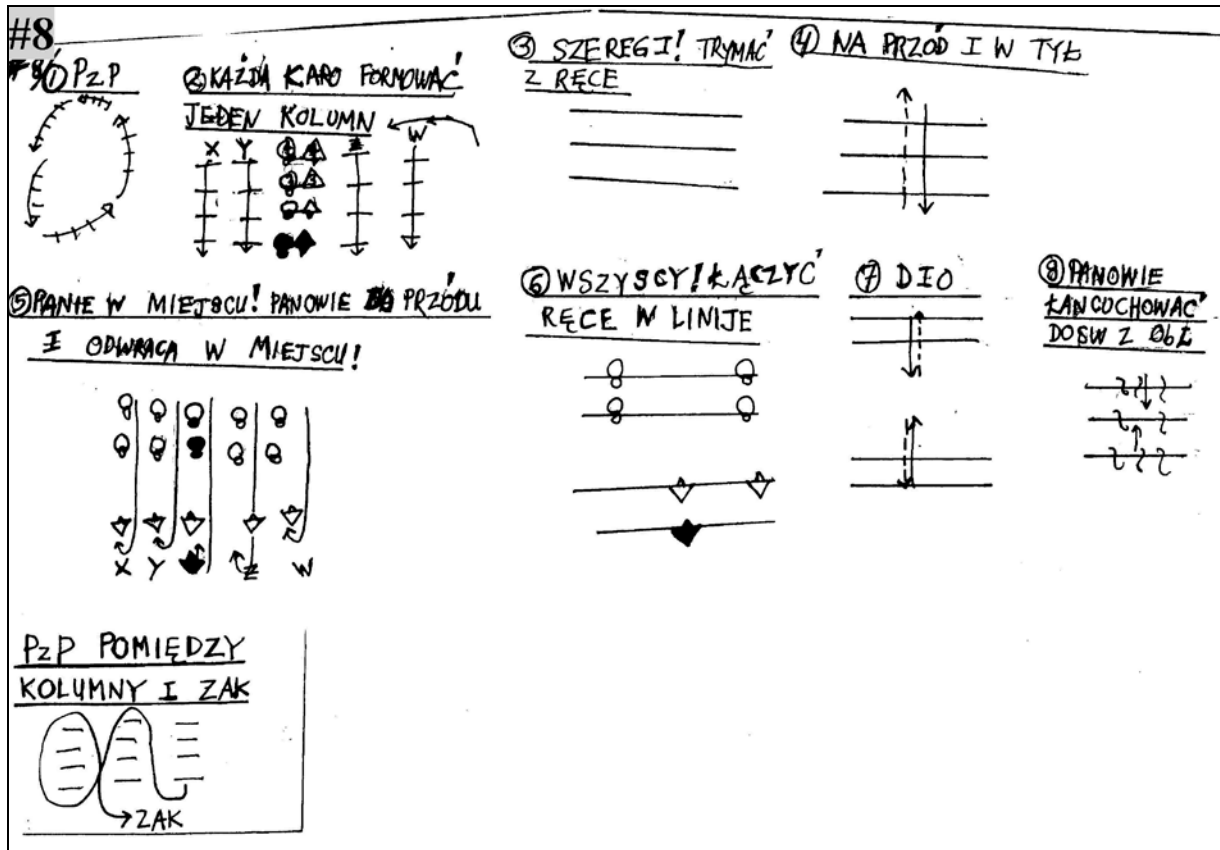 #8
① PzP
② KAŻDA KARO FORMOWAĆ
JEDEN KOLUMN
X Y Z W
③ SZEREGI! TRYMAĆ
Z RĘCE
④ NA PRZÓD I W TYŁ
⑤ PANIE W MIEJSCU! PANOWIE DO PRZÓDU
I ODWRACA W MIEJSCU!
X Y Z W
⑥ WSZYSCY! ŁĄCZYĆ
RĘCE W LINIJE
⑦ DIO
⑧ PANOWIE
ŁANCUCHOWAĆ
DOSW Z OBL
PzP POMIĘDZY
KOLUMNY I ZAK
ZAK